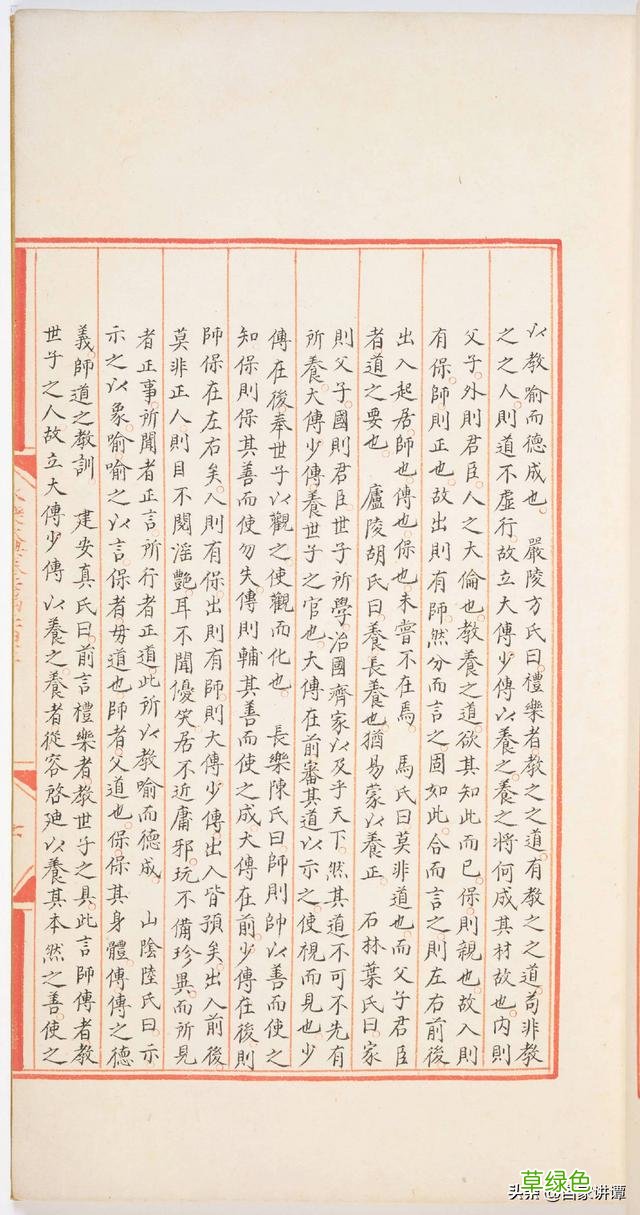 以教喻而德成也　嚴陵方氏曰禮樂者教之之道有教之之道苟非教
之之人則道不虛行故立大傅少傅以養之養之將何成其材故也內則
父子外則君臣人之大倫也教養之道欲其知此而已保則親也故入則
有保師則正也故出則有師然分而言之固如此合而言之則左右前後
出入起居師也傅也保也未嘗不在焉　馬氏曰莫非道也而父子君臣
者道之要也　廬陵胡氏曰養長養也猶易蒙以養正　石林葉氏曰家
則父子國則君臣世子所學治國齊家以及乎天下然其道不可不先有
所養大傅少傅養世子之官也大傅在前審其道以示之使視而見也少
傅在後奉世子以觀之使觀而化也　長樂陳氏曰師則帥以善而使之
知保則保其善而使勿失傅則輔其善而使之成大傅在前少傅在後則
師保在左右矣入則有保出則有師則大傅少傅出入皆預矣出入前後
莫非正人則目不閱淫艷耳不聞優笑居不近庸邪玩不備珍異而所見
者正事所聞者正言所行者正道此所以教喻而德成　山陰陸氏曰示
示之以象喻喻之以言保者毋道也師者父道也保保其身體傅傅之德
義師道之教訓　建安真氏曰前言禮樂者教世子之具此言師傅者教
世子之人故立大傅少傅以養之養者從容啓迪以養其本然之善使之
草绿色
头条